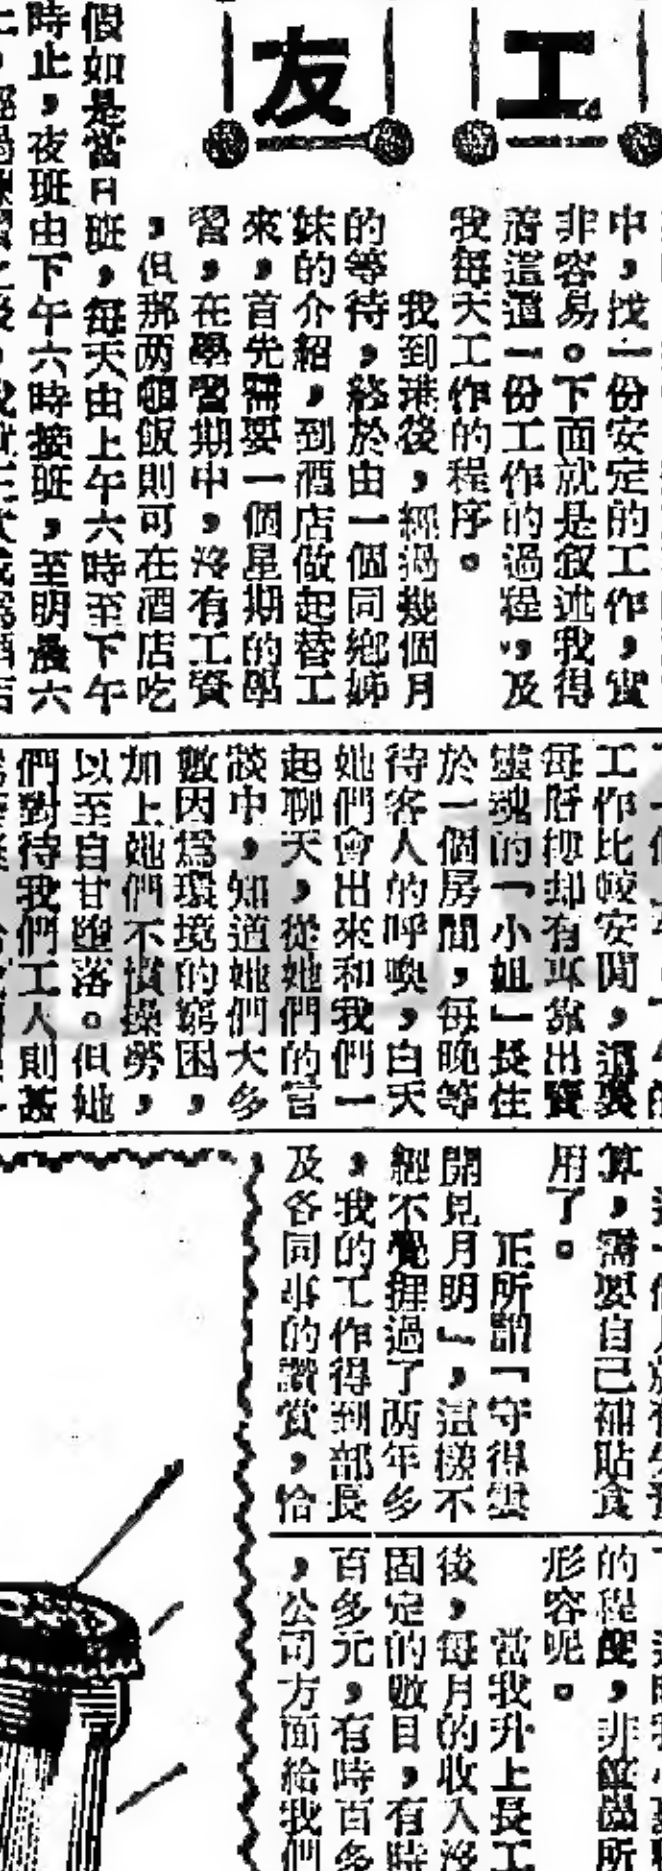 工友
中，找一份安定的工作，實
非容易。下面就是叙述我得
着這一份工作的過程，及
我每天工作的程序。
我到港後，經過幾個月
的等待，終於由一個同鄉姊
妹的介紹，到酒店做起替工
來，首先需要一個星期的學
習，在學習期中，沒有工資
，但那两頓飯則可在酒店吃
假如是當日班，每天由上午六時至下午
時止，夜班由下午六時接班，至明晨六
工作比較安閒，這裏
每層樓却有專靠出賣
靈魂的「小姐」長住
於一個房間，每晚等
待客人的呼喚，白天
她們會出來和我們一
起聊天，從她們的言
談中，知道她們大多
數因爲環境的窮困，
加上她們不慣操勞，
以至自甘墮落。但她
們對待我們工人則甚
算，需要自己補貼食
用了。
正所謂「守得雲
開見月明」，這樣不
經不覺捱過了两年多
，我的工作得到部長
及各同事的讚賞，恰
的程度，非筆墨所
形容呢。
當我升上長工
後，每月的收入沒
固定的數目，有時
百多元，有時百多
，公司方面給我們